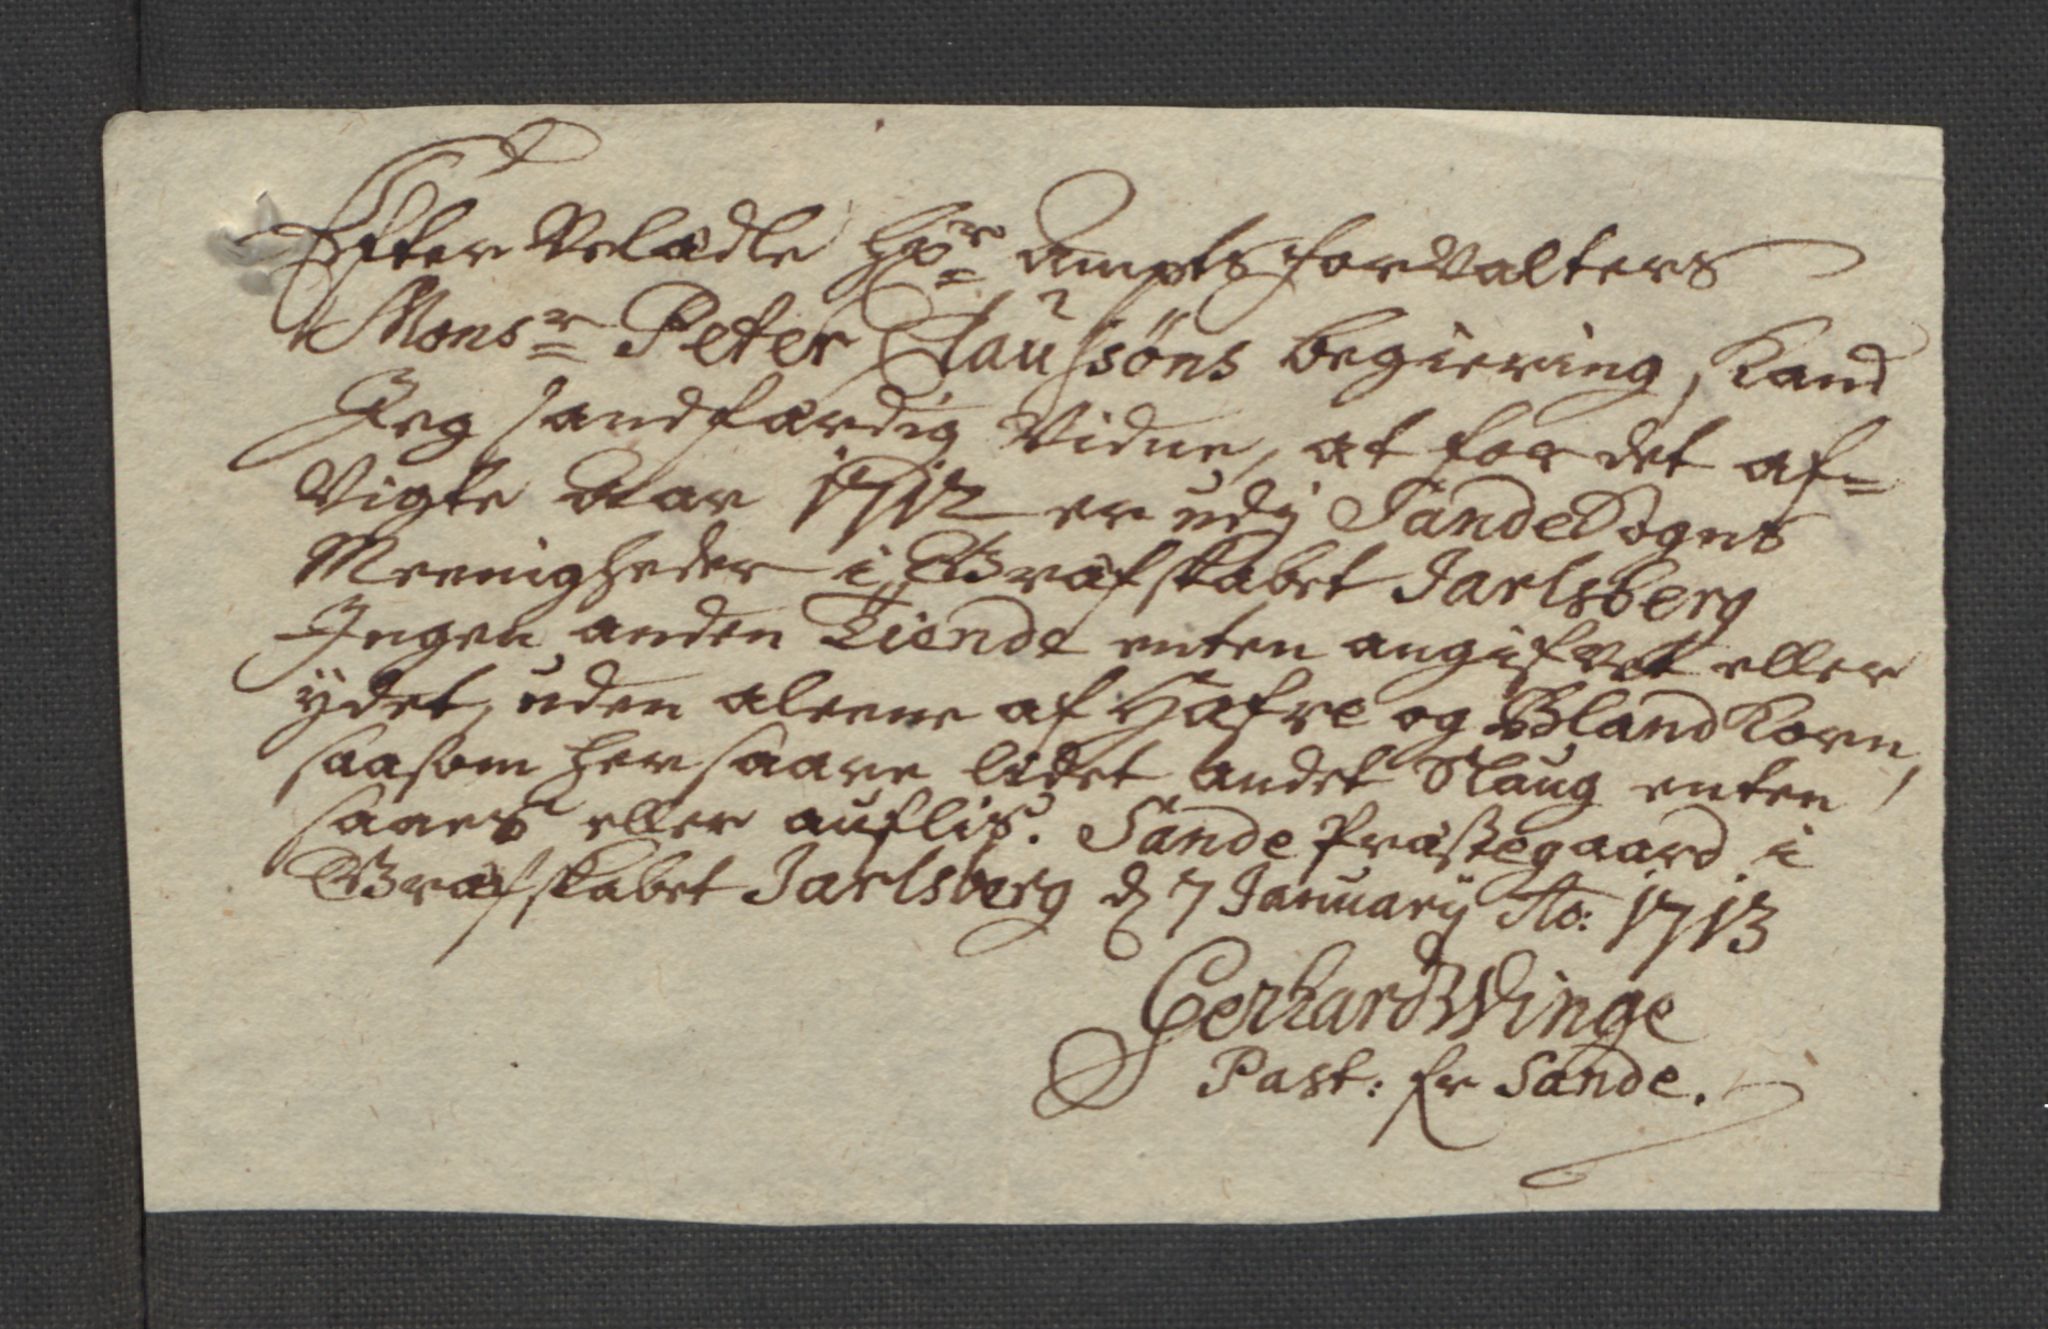 Efter Velædle Hr: Ampts forvalters
Monsr Peter Claussøns begiering, kand
Jeg sandfærdig Vidne, at for det af=
Vigte Aar 1712 er udj Sande Sogns
Meenigheder i Grafskabet Jarlsberg
Ingen anden Tiende enten angifvet eller
ydet, uden aleene af Hafre og Bland Korn,
saasom her saare lidet andet Slaug enten
saaes eller auflis. Sande Præstegaard i
Grafskabet Jarlsberg d 7 January Ao: 1713
Gerhard Winge
Past: fr Sande.